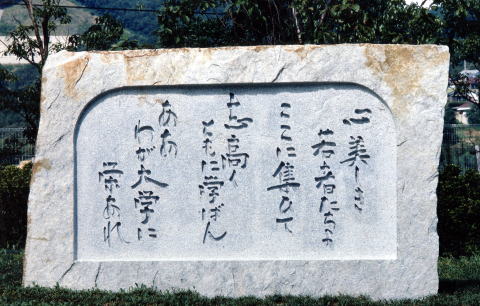 心美しき
若者たちよ
ここに集ひて
志高く
ともに学ばん
ああ
わが大学に
栄あれ